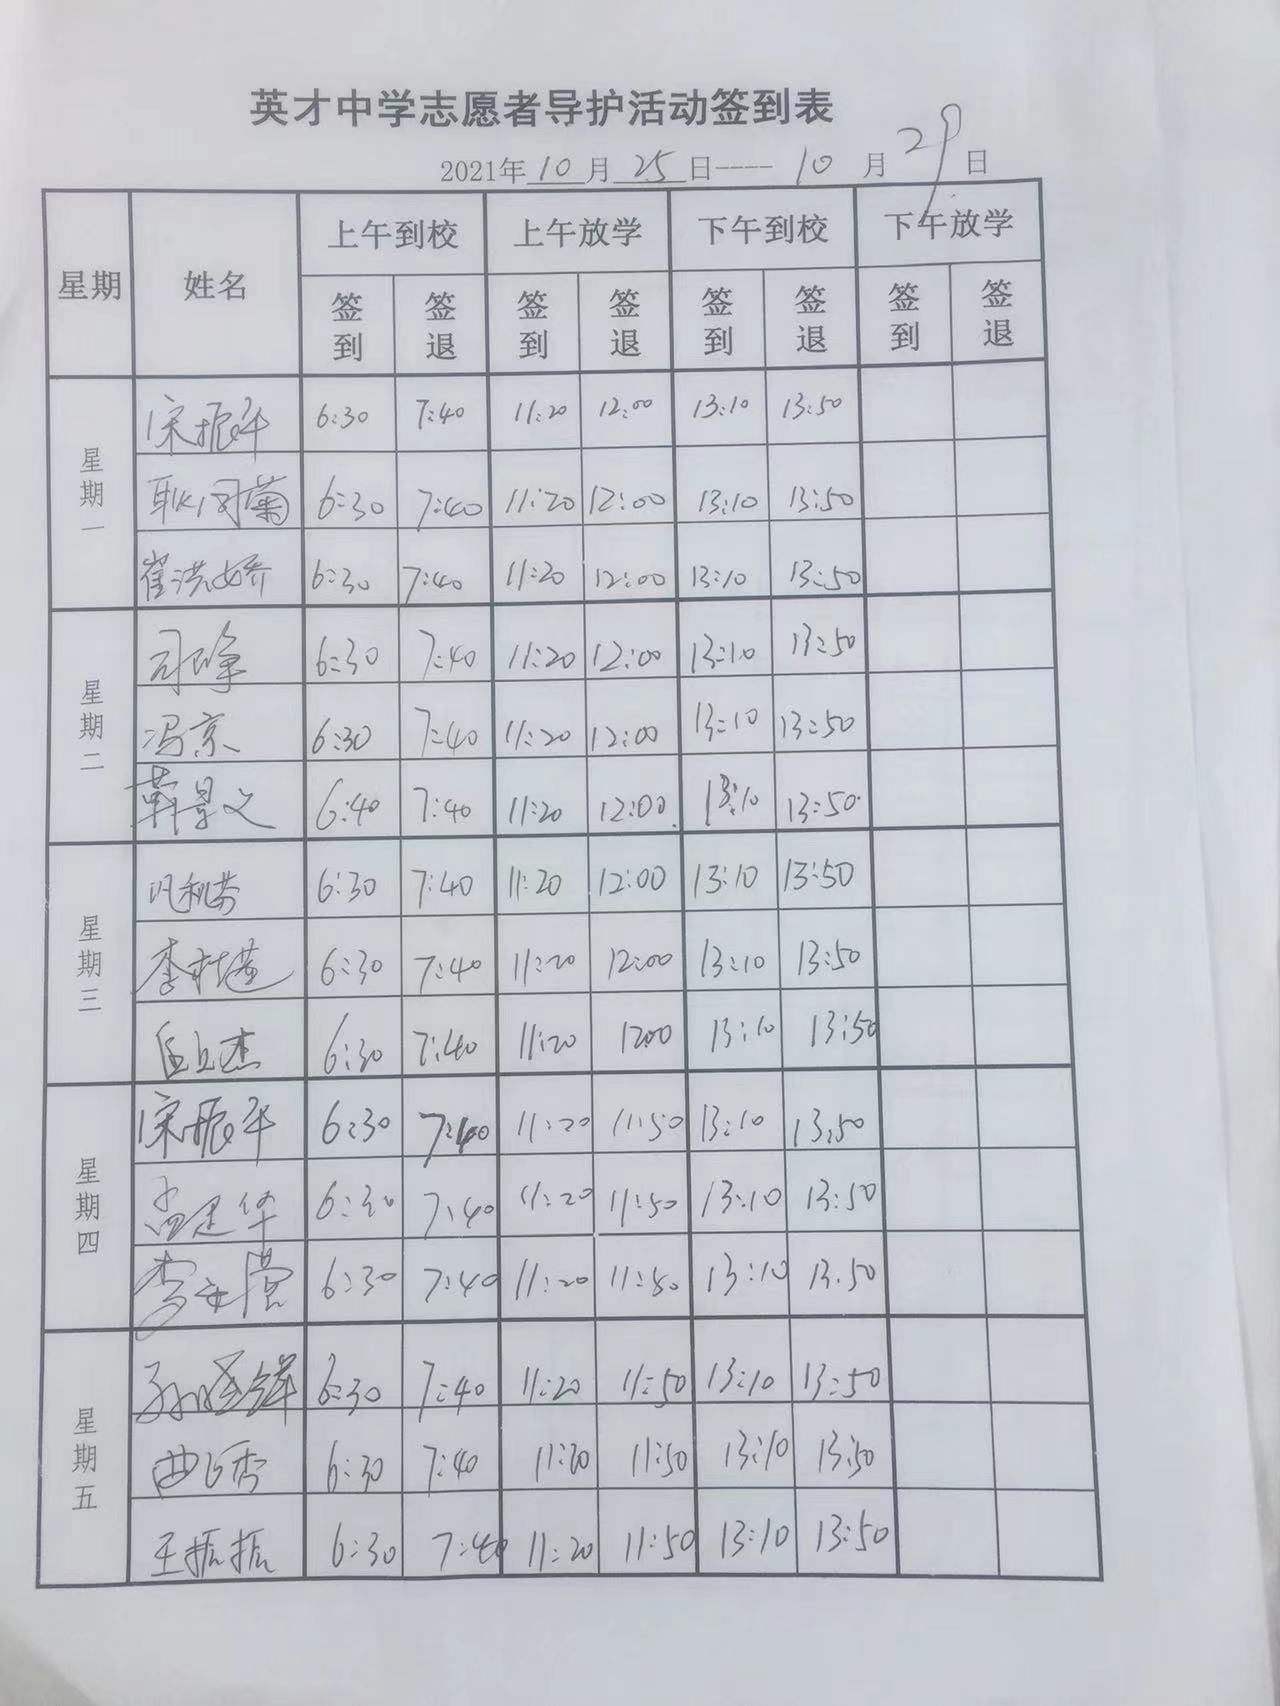 英才中学志愿者导护活动签到表
2021年10月25日----10月29日
星期 姓名 上午到校 上午放学 下午到校 下午放学
签到 签退 签到 签退 签到 签退 签到 签退
星期一
宋振华 6:30 7:40 11:20 12:00 13:10 13:50
耿同菊 6:30 7:40 11:20 12:00 13:10 13:50
崔洪娇 6:30 7:40 11:20 12:00 13:10 13:50
星期二
6:30 7:40 11:20 12:00 13:10 13:50
冯京 6:30 7:40 11:20 12:00 13:10 13:50
靳景义 6:40 7:40 11:20 12:00 13:10 13:50
星期三
6:30 7:40 11:20 12:00 13:10 13:50
李 6:30 7:40 11:20 12:00 13:10 13:50
6:30 7:40 11:20 1200 13:10 13:50
星期四
宋振华 6:30 7:40 11:20 11:50 13:10 13:50
孟建华 6:30 7:40 11:20 11:50 13:10 13:50
李 6:30 7:40 11:20 11:50 13:10 13:50
星期五
孙 6:30 7:40 11:20 11:50 13:10 13:50
曲 6:30 7:40 11:20 11:50 13:10 13:50
王振振 6:30 7:40 11:20 11:50 13:10 13:50